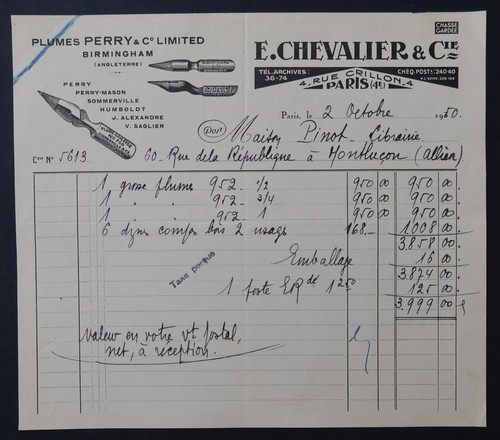 CHASSE GARDÉE
PLUMES PERRY & Cº LIMITED
BIRMINGHAM
(ANGLETERRE)
E. CHEVALIER & CIE
TÉL. ARCHIVES: 36-74
CHÈQ. POST: 240-40
4, RUE CRILLON, 4
PARIS (4E)
PERRY
PERRY-MASON
SOMMERVILLE
HUMBOLDT
J. ALEXANDRE
V. SAGLIER
Paris, le 2 Octobre 1950.
Doit Maison Pinot - Librairie
Cte Nº 5613. 60. Rue de la République à Montluçon (Allier)
1 grosse plume 952 1/2 950 00 950 00.
1 " " 952 3/4 950 00 950 00.
1 " 952 1 950 00 950 00.
6 dznes compas bois 2 usages 168.- 1008 00.
3.858 00
Emballage 16 00.
3.874 00
Taxe perçue
1 poste 125 00.
3.999 00
valeur en votre vt postal,
net, à réception.